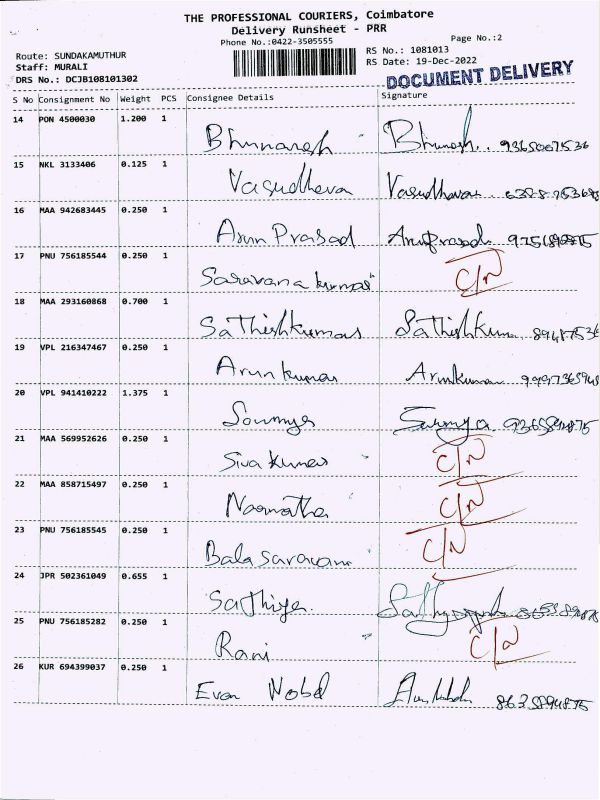 THE PROFESSIONAL COURIERS, Coimbatore
Delivery Runsheet - PRR
Phone No.:0422-3505555
Page No.:2
Route: SUNDAKAMUTHUR
RS No.: 1081013
Staff: MURALI
RS Date: 19-Dec-2022
DRS No.: DCJB108101302
DOCUMENT DELIVERY
S No Consignment No Weight PCS Consignee Details Signature
14 PON 4500030 1.200 1
15 NKL 3133406 0.125 1
Vasudheva
16 MAA 942683445 0.250 1
Arun Prasad
17 PNU 756185544 0.250 1
Saravana kumar C/N
18 MAA 293160868 0.700 1
Sathishkumar
19 VPL 216347467 0.250 1
Arun kumar Arunkumar
20 VPL 941410222 1.375 1
Soumya
21 MAA 569952626 0.250 1
Siva kumar C/N
22 MAA 858715497 0.250 1
Namratha C/N
23 PNU 756185545 0.250 1
Bala saravana C/N
24 JPR 502361049 0.655 1
Sathiya
25 PNU 756185282 0.250 1
Rani C/N
26 KUR 694399037 0.250 1
Evan